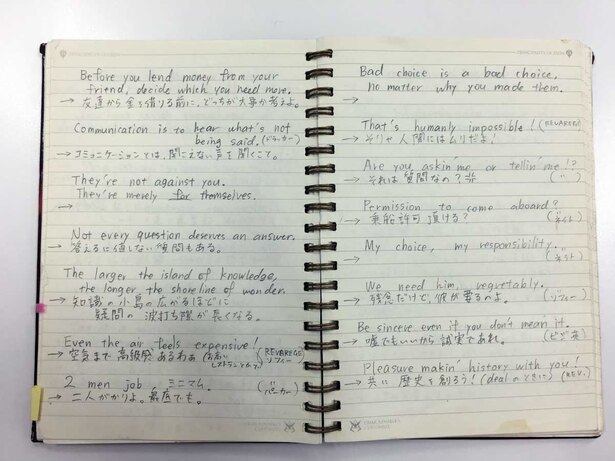 Before you lend money from your
friend, decide which you need more.
→ 友達から金を借りる前に、どっちが大事か考えよ。
Communication is to hear what's not
being said. (ドラッカー)
→ コミュニケーションとは、聞こえない声を聞くこと。
They're not against you.
They're merely for themselves.
→
Not every question deserves an answer.
→ 答えるに値しない質問もある。
The larger the island of knowledge,
the longer the shoreline of wonder.
→ 知識の小島の広がるほどに
疑問の波打ち際が長くなる。
Even the air feels expensive!
(REVAREGE
→ 空気まで高級感あるわぁ
ソフィー)
2 men job, ミニマム.
(〃
パーカー)
→ 二人がかりよ。最低でも。
Bad choice is a bad choice,
no matter why you made them.
→
That's humanly impossible! (REVAREGE)
→ そりゃ人間にはムリだよ!
Are you askin' me or tellin' me!?
→ それは質問なの?
(〃)
Permission to come aboard?
→ 乗船許可頂ける?
(〃
ネイト)
My choice, my responsibility.
→
(〃
ネイト)
We need him, regretably.
→ 残念だけど、彼が要るのよ。
(〃
ソフィー)
Be sincere even if you don't mean it.
→ 嘘でもいいから誠実であれ。
(ビジ英)
Pleasure makin' history with you!
→ 共に歴史を創ろう! (dealのときに) (REV.)